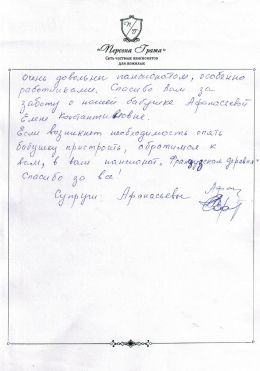 «Перевия Грамъ»
Сеть частных пансионатов
для пожилых
очень довольны пансионатом, особенно
работниками. Спасибо Вам за
заботу о нашей бабушке Афанасьевой
Елене Константиновне.
Если возникнет необходимость опять
бабушку пристроить, обратимся к
вам, в ваш пансионат, Французская деревня"
Спасибо за все!
Супруги: Афанасьевы